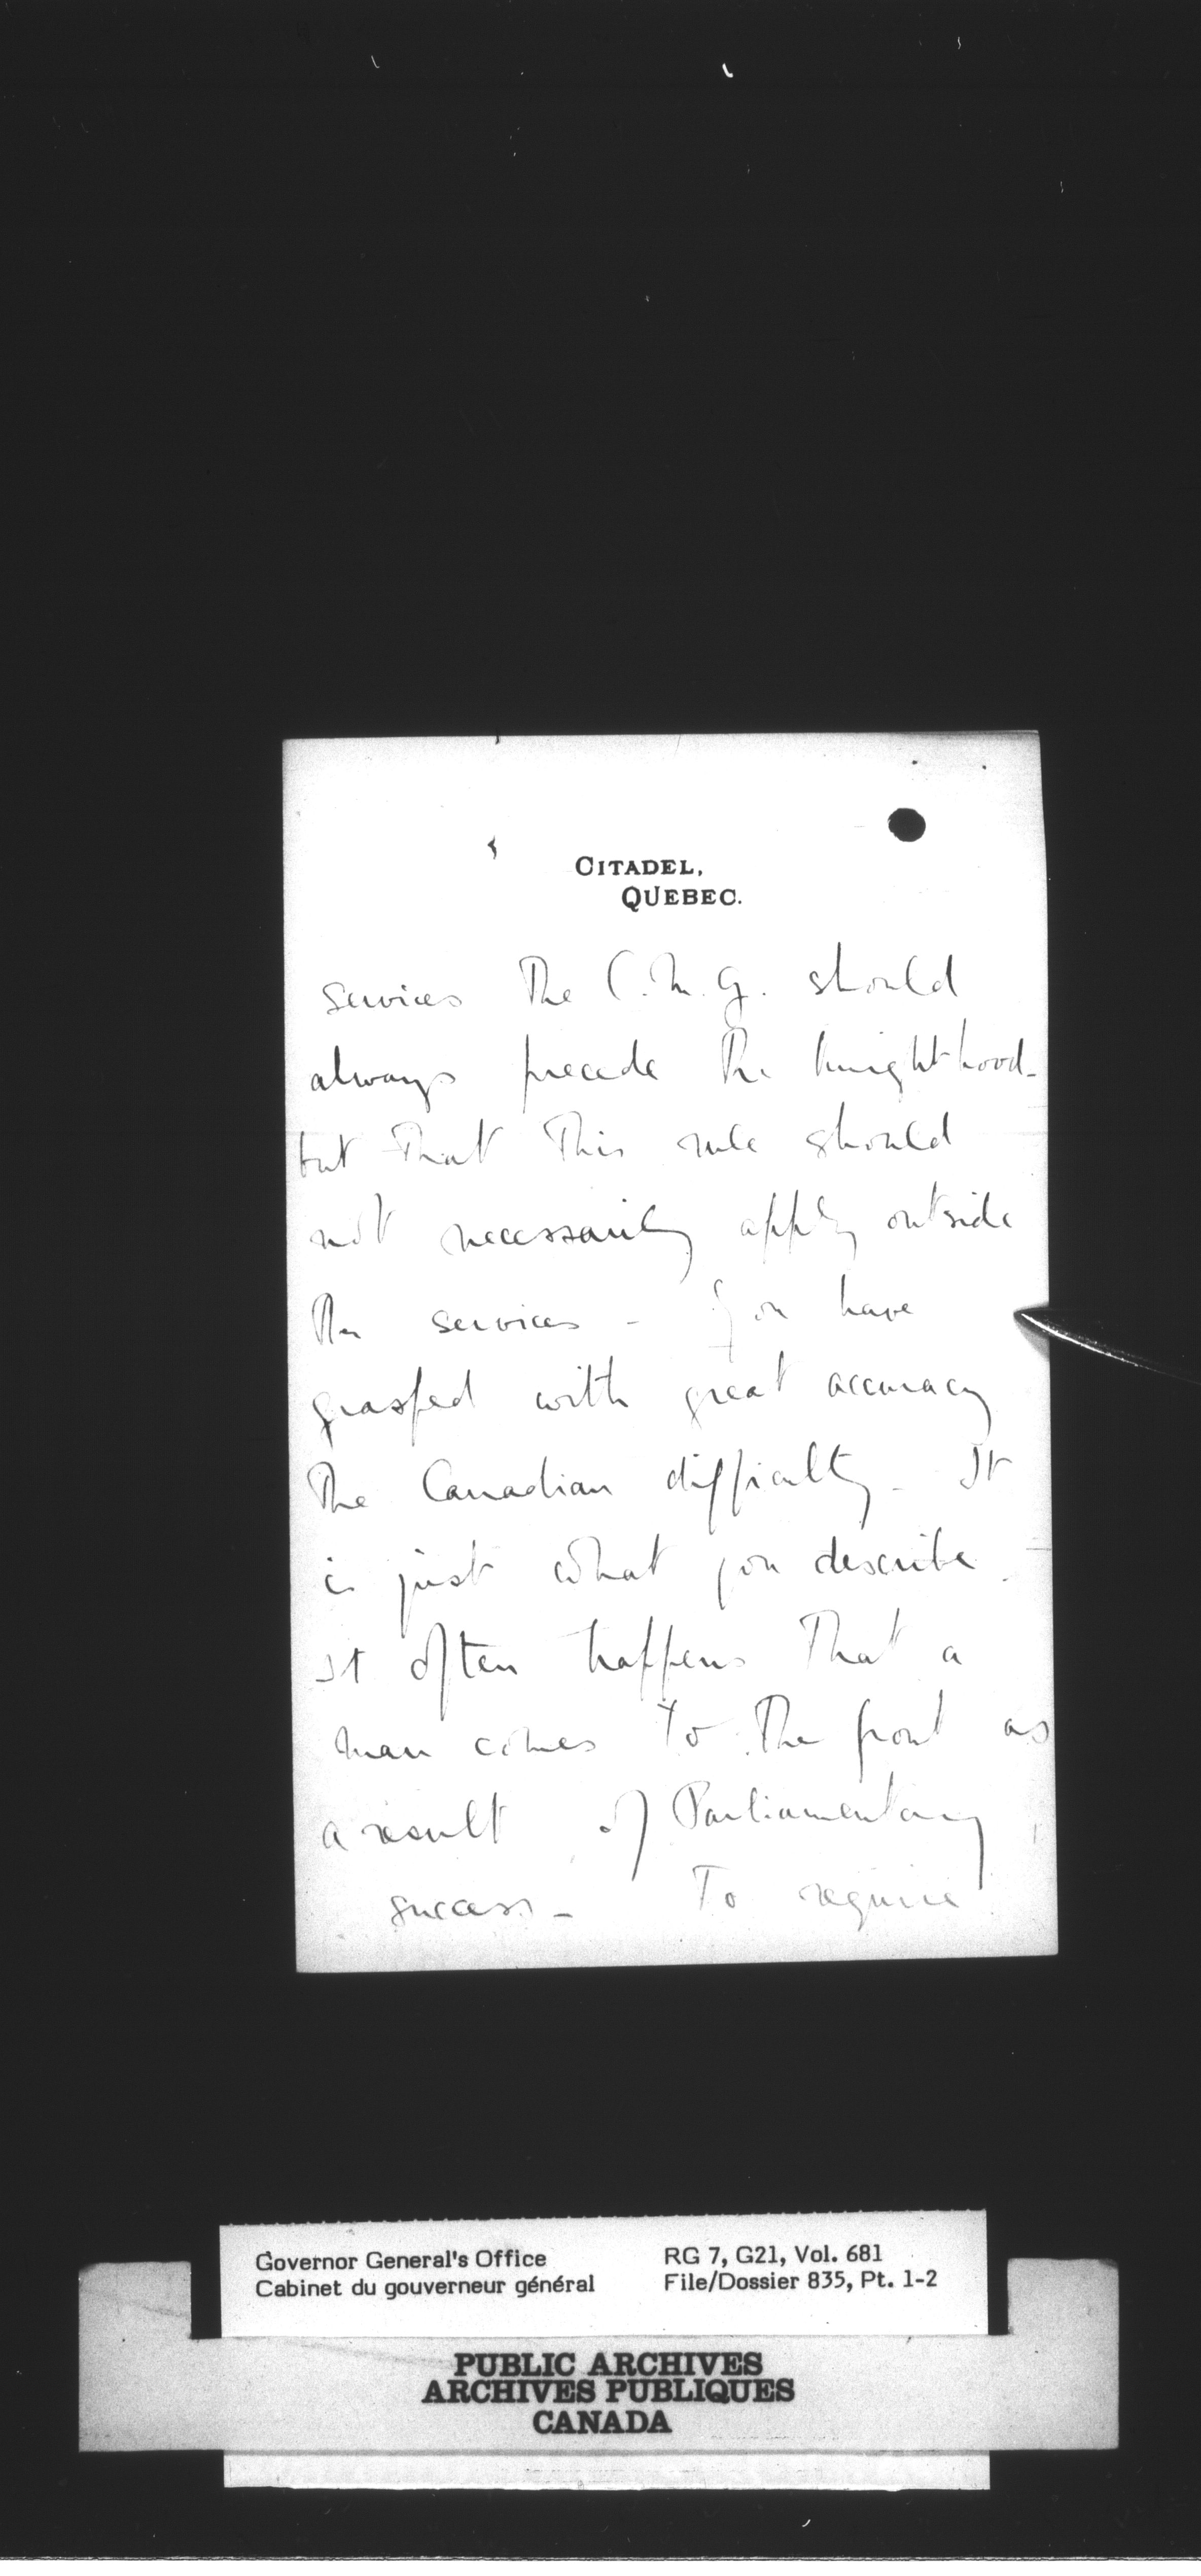 CITADEL,
QUEBEC.
services the C.M.G. should
always precede the knighthood -
but that this rule should
not necessarily apply outside
the services - You have
grasped with great accuracy
the Canadian difficulty - It
is just what you describe.
It often happens that a
man comes to the front as
a result of Parliamentary
success - To require
Governor General's Office
Cabinet du gouverneur général
RG 7, G21, Vol. 681
File/Dossier 835, Pt. 1-2
PUBLIC ARCHIVES
ARCHIVES PUBLIQUES
CANADA